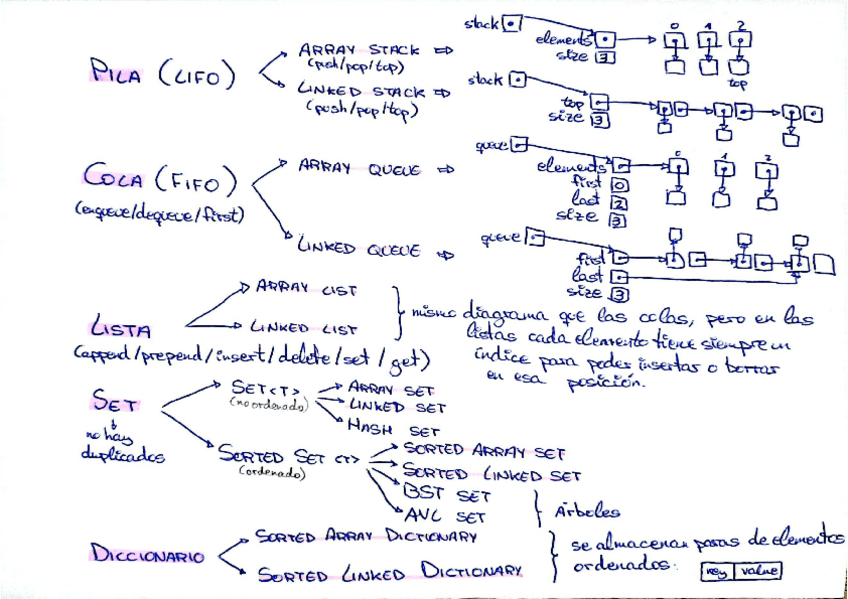 PILA (LIFO)
ARRAY STACK ⇨
(push/pop/top)
LINKED STACK ⇨
(push/pop/top)
stack
elements
size 3
0 1 2
top
stack
top
size 3
COLA (FIFO)
(enqueue/dequeue/first)
ARRAY QUEUE ⇨
queue
elements
first 0
last 2
size 3
0 1 2
LINKED QUEUE ⇨
queue
first
last
size 3
LISTA
(append/prepend/insert/delete/set/get)
ARRAY LIST
LINKED LIST
mismo diagrama que las colas, pero en las
listas cada elemento tiene siempre un
índice para poder insertar o borrar
en esa posición.
SET
no hay
duplicados
SET<T>
(no ordenado)
ARRAY SET
LINKED SET
HASH SET
SORTED SET <T>
(ordenado)
SORTED ARRAY SET
SORTED LINKED SET
BST SET
AVL SET
Árboles
DICCIONARIO
SORTED ARRAY DICTIONARY
SORTED LINKED DICTIONARY
se almacenan pares de elementos
ordenados:
key value